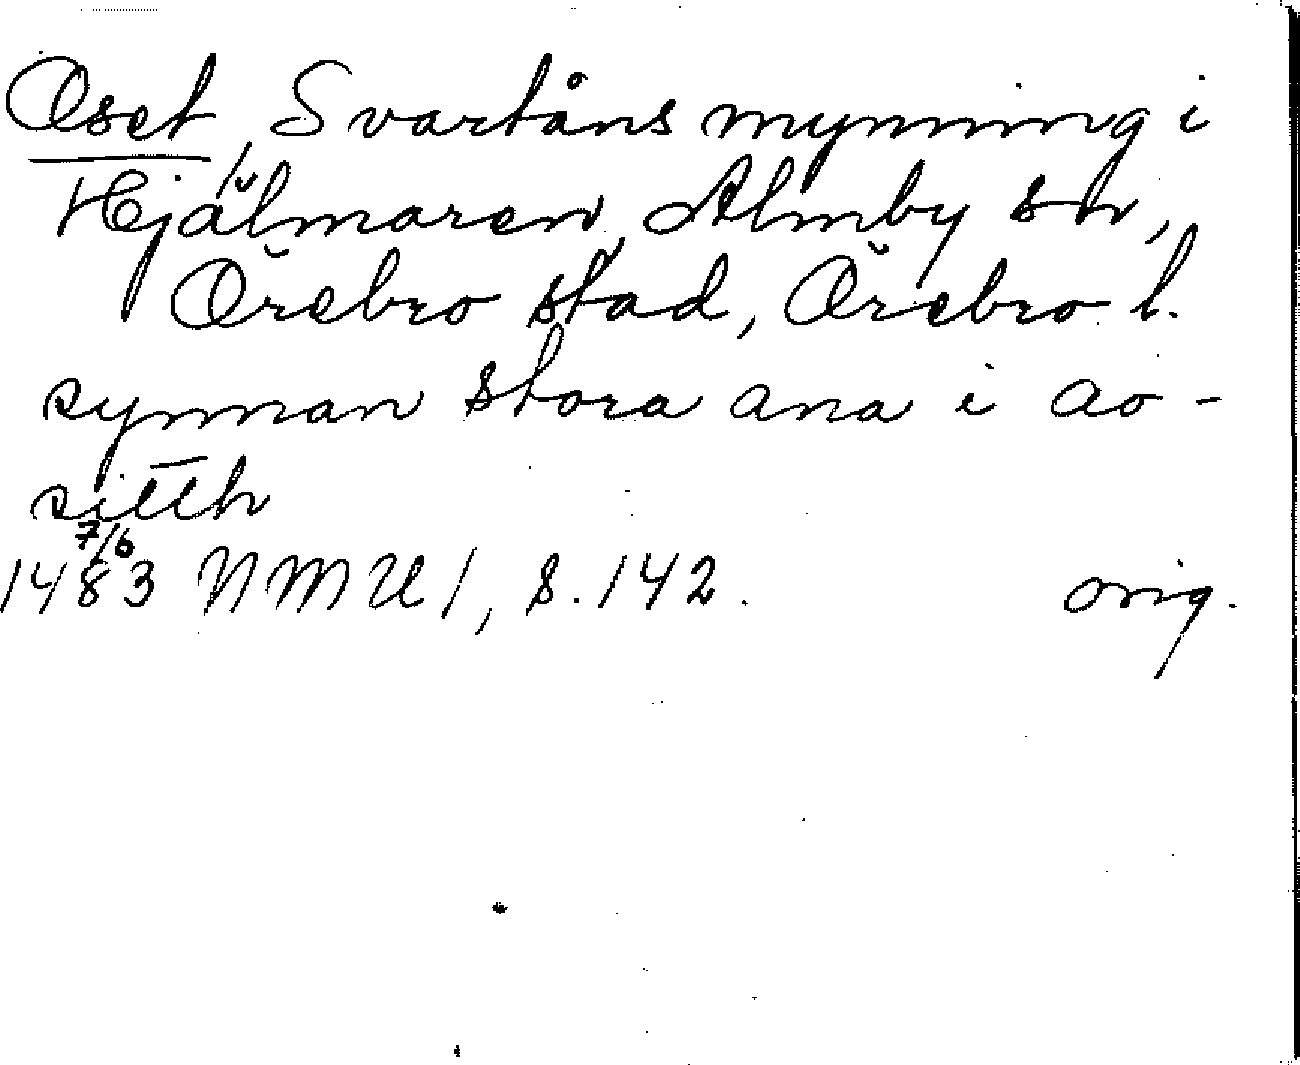 Oset, Svartåns mynning i
Hjälmaren, Almby sn,
Örebro stad, Örebro l.
synnan stora ana i ao-
sitth
7/6
1483 NMU 1, s. 142. orig.